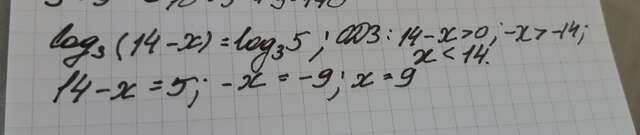 log₃(14-x)=log₃5; ОДЗ: 14-x>0; -x>-14;
x<14.
14-x=5; -x=-9; x=9